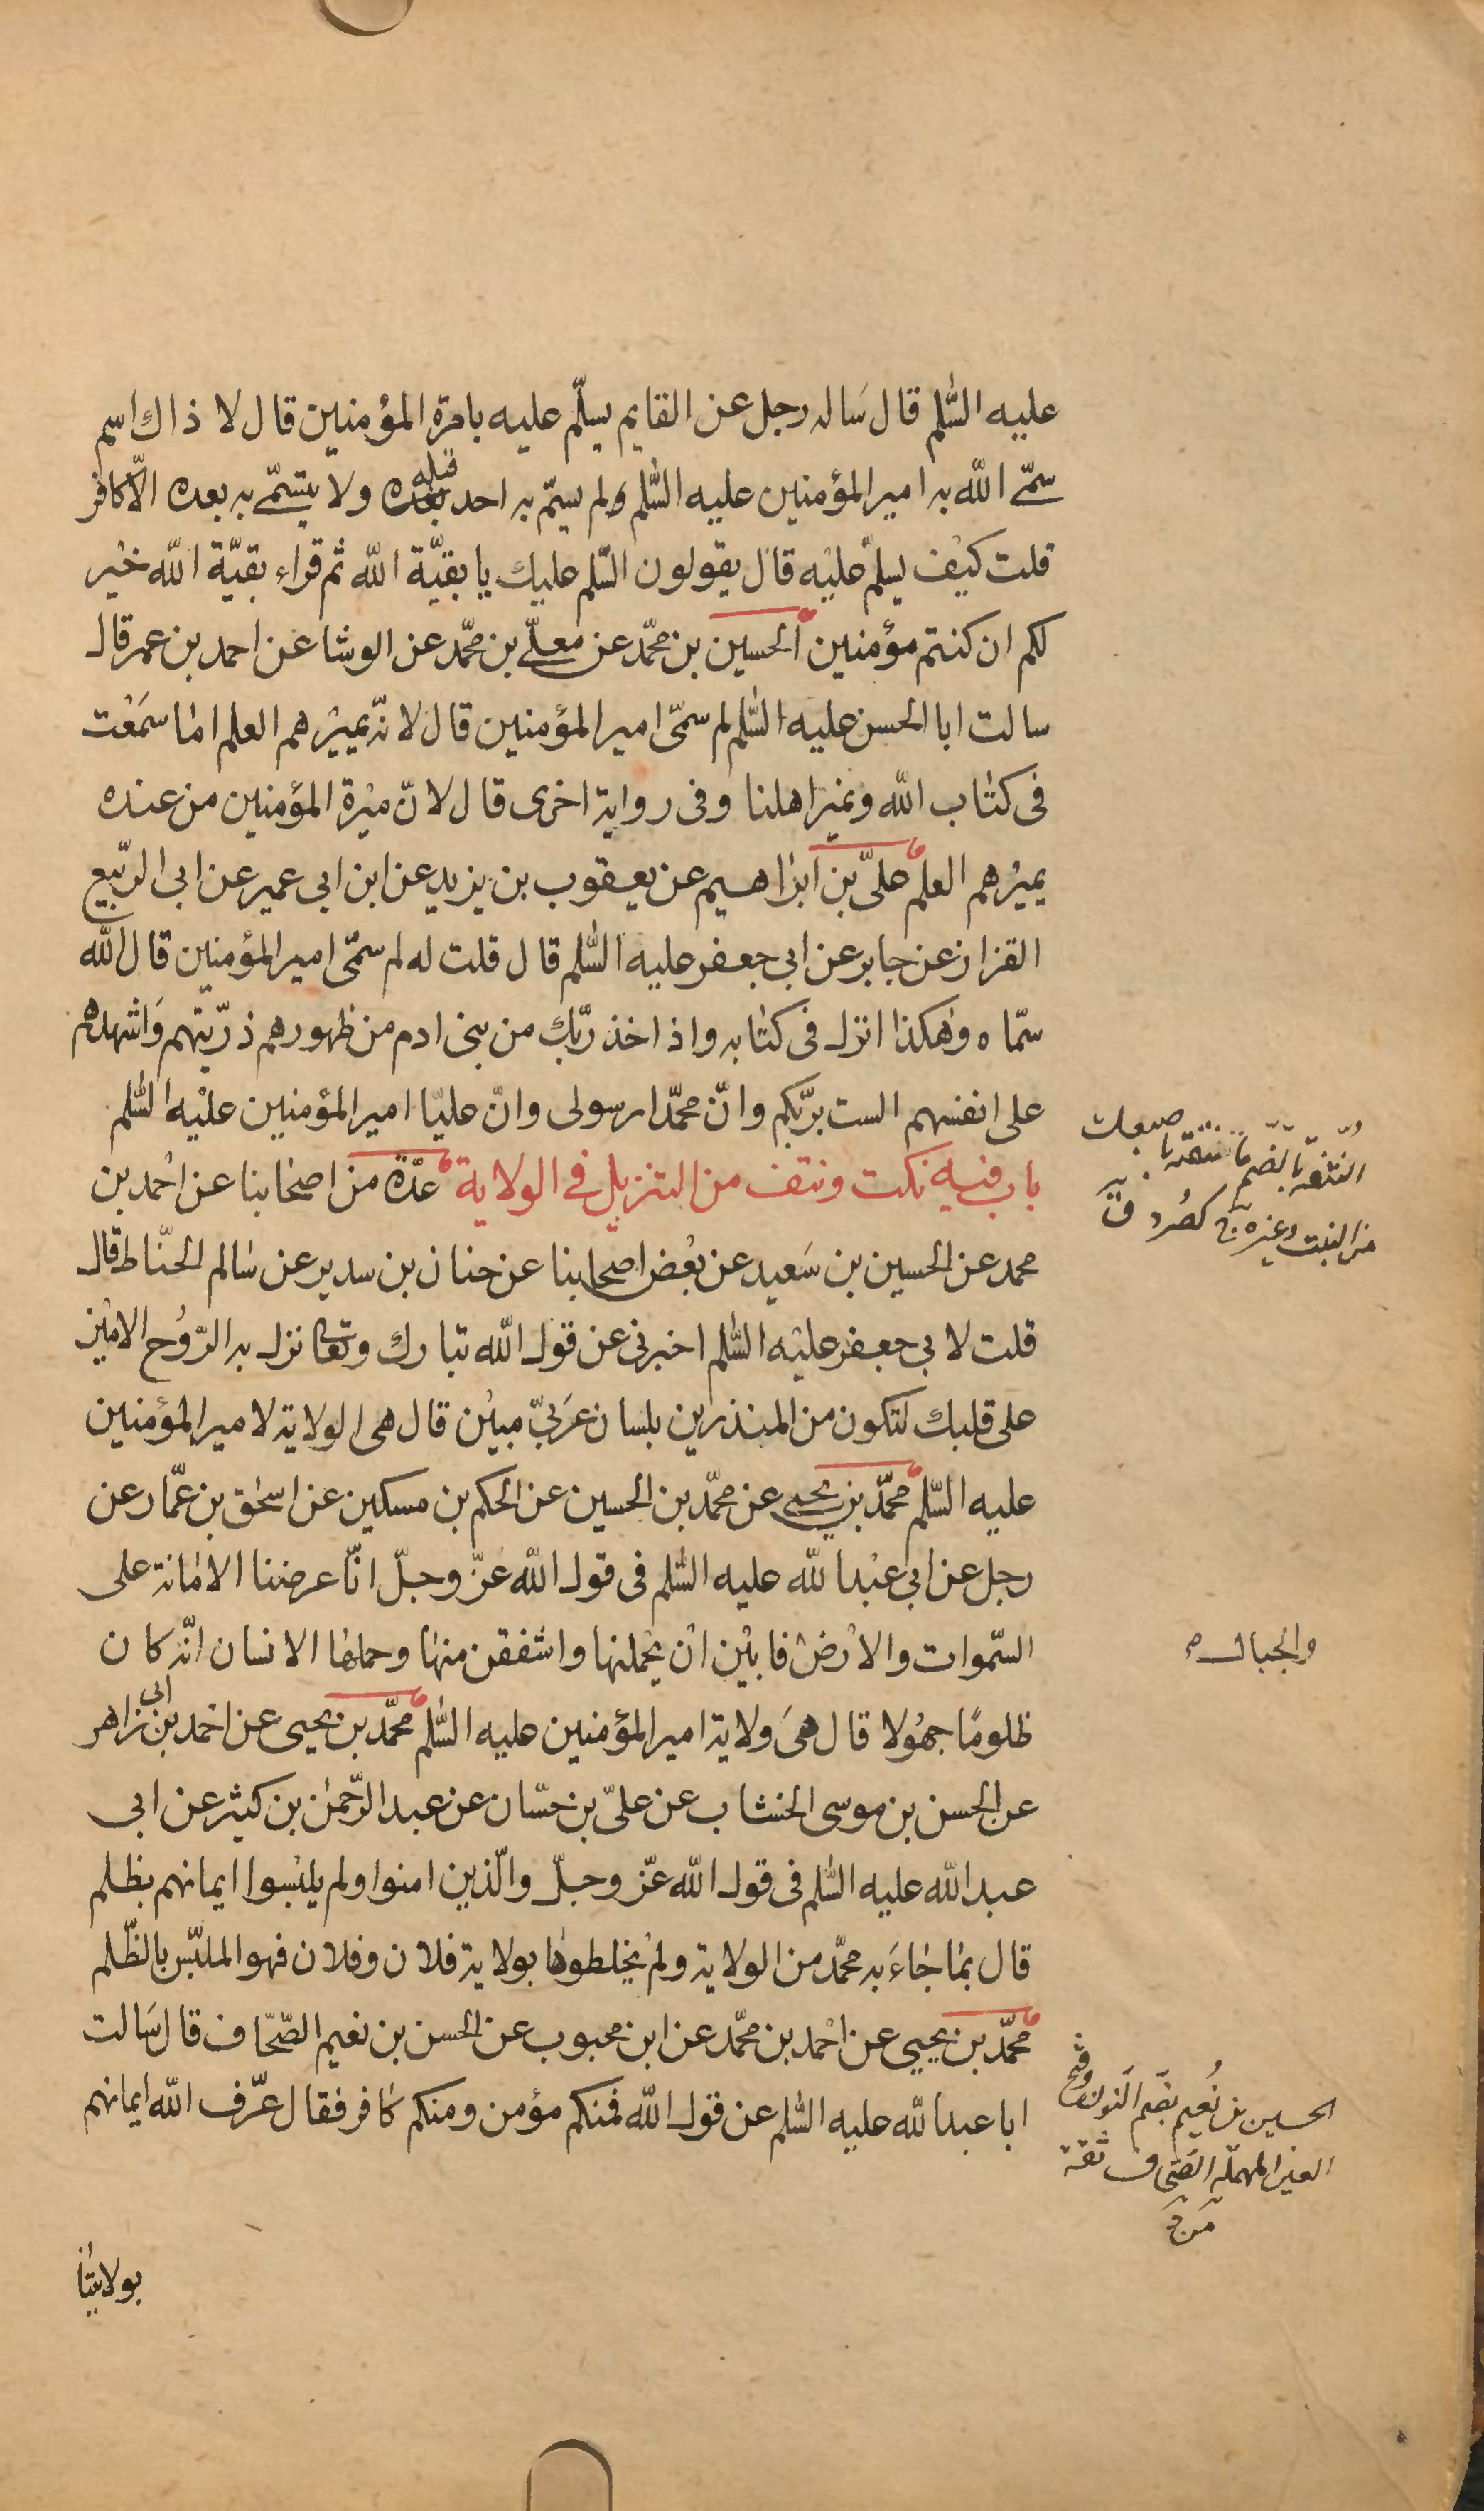 عليه السّلم قال سَاله رجل عن القايم يسلّم عليه بامرة المؤمنين قال لا ذاك اسم
سمّى الله به امير المؤمنين عليه السّلم ولم يسمّ به احد قبله بعده ولا يتسمّى به بعده الّا كافر
قلت كيْف يسلم عليْه قال يقولون السّلم عليك يا بقيّة الله ثم قراء بقيّة الله خيْر
لكم ان كنتم مؤمنين الحسين بن محمّد عن معلّى بن محمّد عن الوشا عن احمد بن عمر قال
سالت ابا الحسن عليه السّلم لم سمّى امير المؤمنين قال لانّه يميْرهم العلم اما سمَعْت
فى كتاب الله ونمير اهلنا وفى رواية اخرى قال لانّ ميْرة المؤمنين من عنده
يميْرهم العلم علىّ بن ابراهيم عن يعقوب بن يزيد عن ابن ابى عمير عن ابى الرّبيع
القزاز عن جابر عن ابى جعفر عليه السّلم قال قلت له لم سمّى امير المؤمنين قال الله
سمّاه وهكذا انزل فى كتابه واذ اخذ ربّك من بنى ادم من ظهورهم ذرّيّتهم وَاشهدهم
على انفسهم الست بربّكم وانّ محمّدا رسولى وانّ عليّا امير المؤمنين عليْه السّلم
باب فيه نكت ونتف من التنزيل فى الولاية عدّة من اصحابنا عن احْمد بن
محمد عن الحسين بن سَعيد عن بعْض اصحابنا عن حنان بن سدير عن سالم الحنّاط قال
قلت لابى جعفر عليْه السّلم اخبرنى عن قول الله تبارك وتعا نزل به الرّوُح الامْين
على قلبك لتكون من المنذرين بلسان عَربىّ مبيْن قال هى الولاية لامير المؤمنين
عليه السّلم محمّد بن يحيى عن محمّد بن الحسين عن الحكم بن مسكين عن اسحق بن عمّار عن
رجل عن ابى عبْد الله عليه السّلم فى قول الله عزّ وجلّ انّا عرضنا الامانة على
السّموات والارْض فابيْن انْ يحْملنها واشفقن منها وحملها الانسان انّه كان
ظلومًا جهُولا قال هىَ ولاية امير المؤمنين عليه السّلم محمّد بن يحيى عن احْمد بن ابى زاهر
عن الحسن بن موسى الخشاب عن علىّ بن حسّان عن عبد الرّحمن بن كثير عن ابى
عبد الله عليه السّلم فى قول الله عزّ وجلّ والّذين امنوا ولم يلبْسوا ايمانهم بظلم
قال بما جاءَ به محمّد من الولاية ولمْ يخلطوها بولاية فلان وفلان فهو الملبّس بالظّلم
محمّد بن يحيى عن احْمد بن محمّد عن ابن محبوب عن الحسن بن نعيم الصّحّاف قال سَالت
ابا عبد الله عليه السّلم عن قول الله فمنكم مؤمن ومنكم كافر فقال عرّف الله ايمانهم
بولايتنا
النتفة بالضم ما تنتفه باصبعك
من النبت وغيره ج كصُرد ق
والجبال
الحسين بن نُعيم بضم النون وفتح
العين المهملة الصحاف ثقة